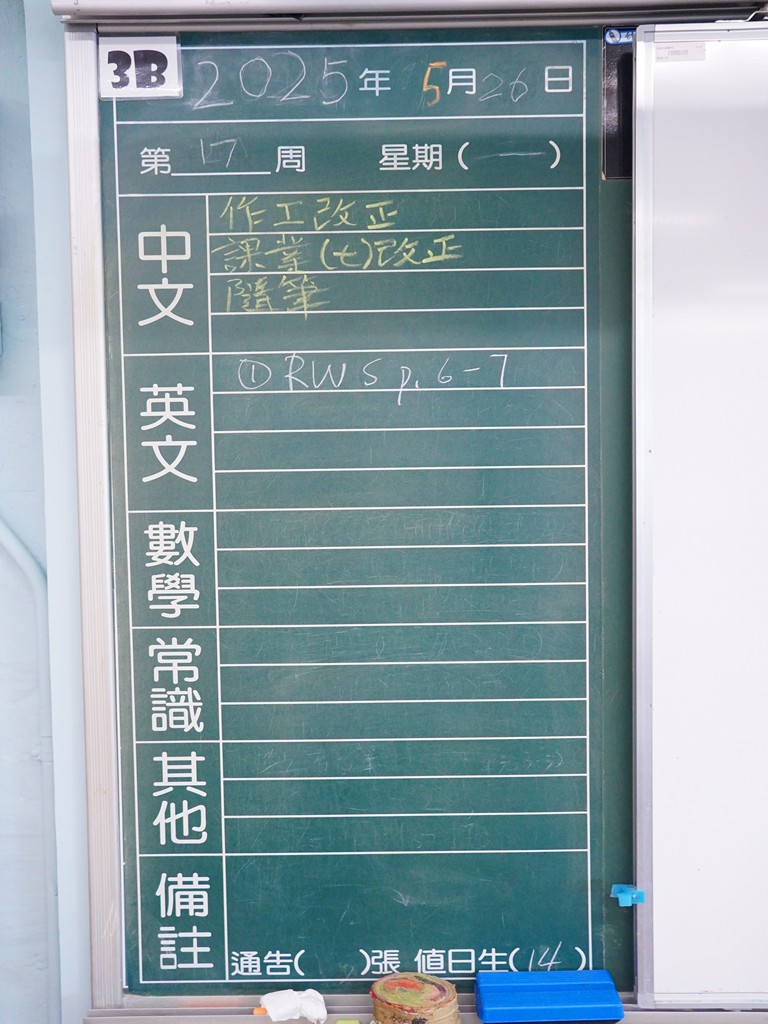 3B
2025年5月26日
第17周 星期(一)
中文
作工改正
課業(七)改正
隨筆
英文
① RWS p. 6-7
數學
常識
其他
備註
通告( )張 值日生(14)